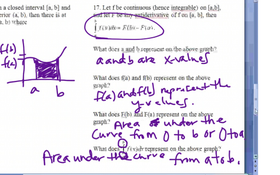 a closed interval [a, b] and
erior (a, b), then there is at
b) where
17. Let f be continuous (hence integrable) on [a,b],
and let F be any antiderivative of f on [a, b], then
f(x)dx = F(b) - F(a).
f(b)
f(a)
a b
What does a and b represent on the above graph?
a and b are x-values
What does f(a) and f(b) represent on the above
graph?
f(a) and f(b) represent the
y-values.
What does F(b) and F(a) represent on the above
graph?
Area under the
curve from 0 to b or 0 to a
f(x)dx represent on the above graph?
Area under the curve from a to b.